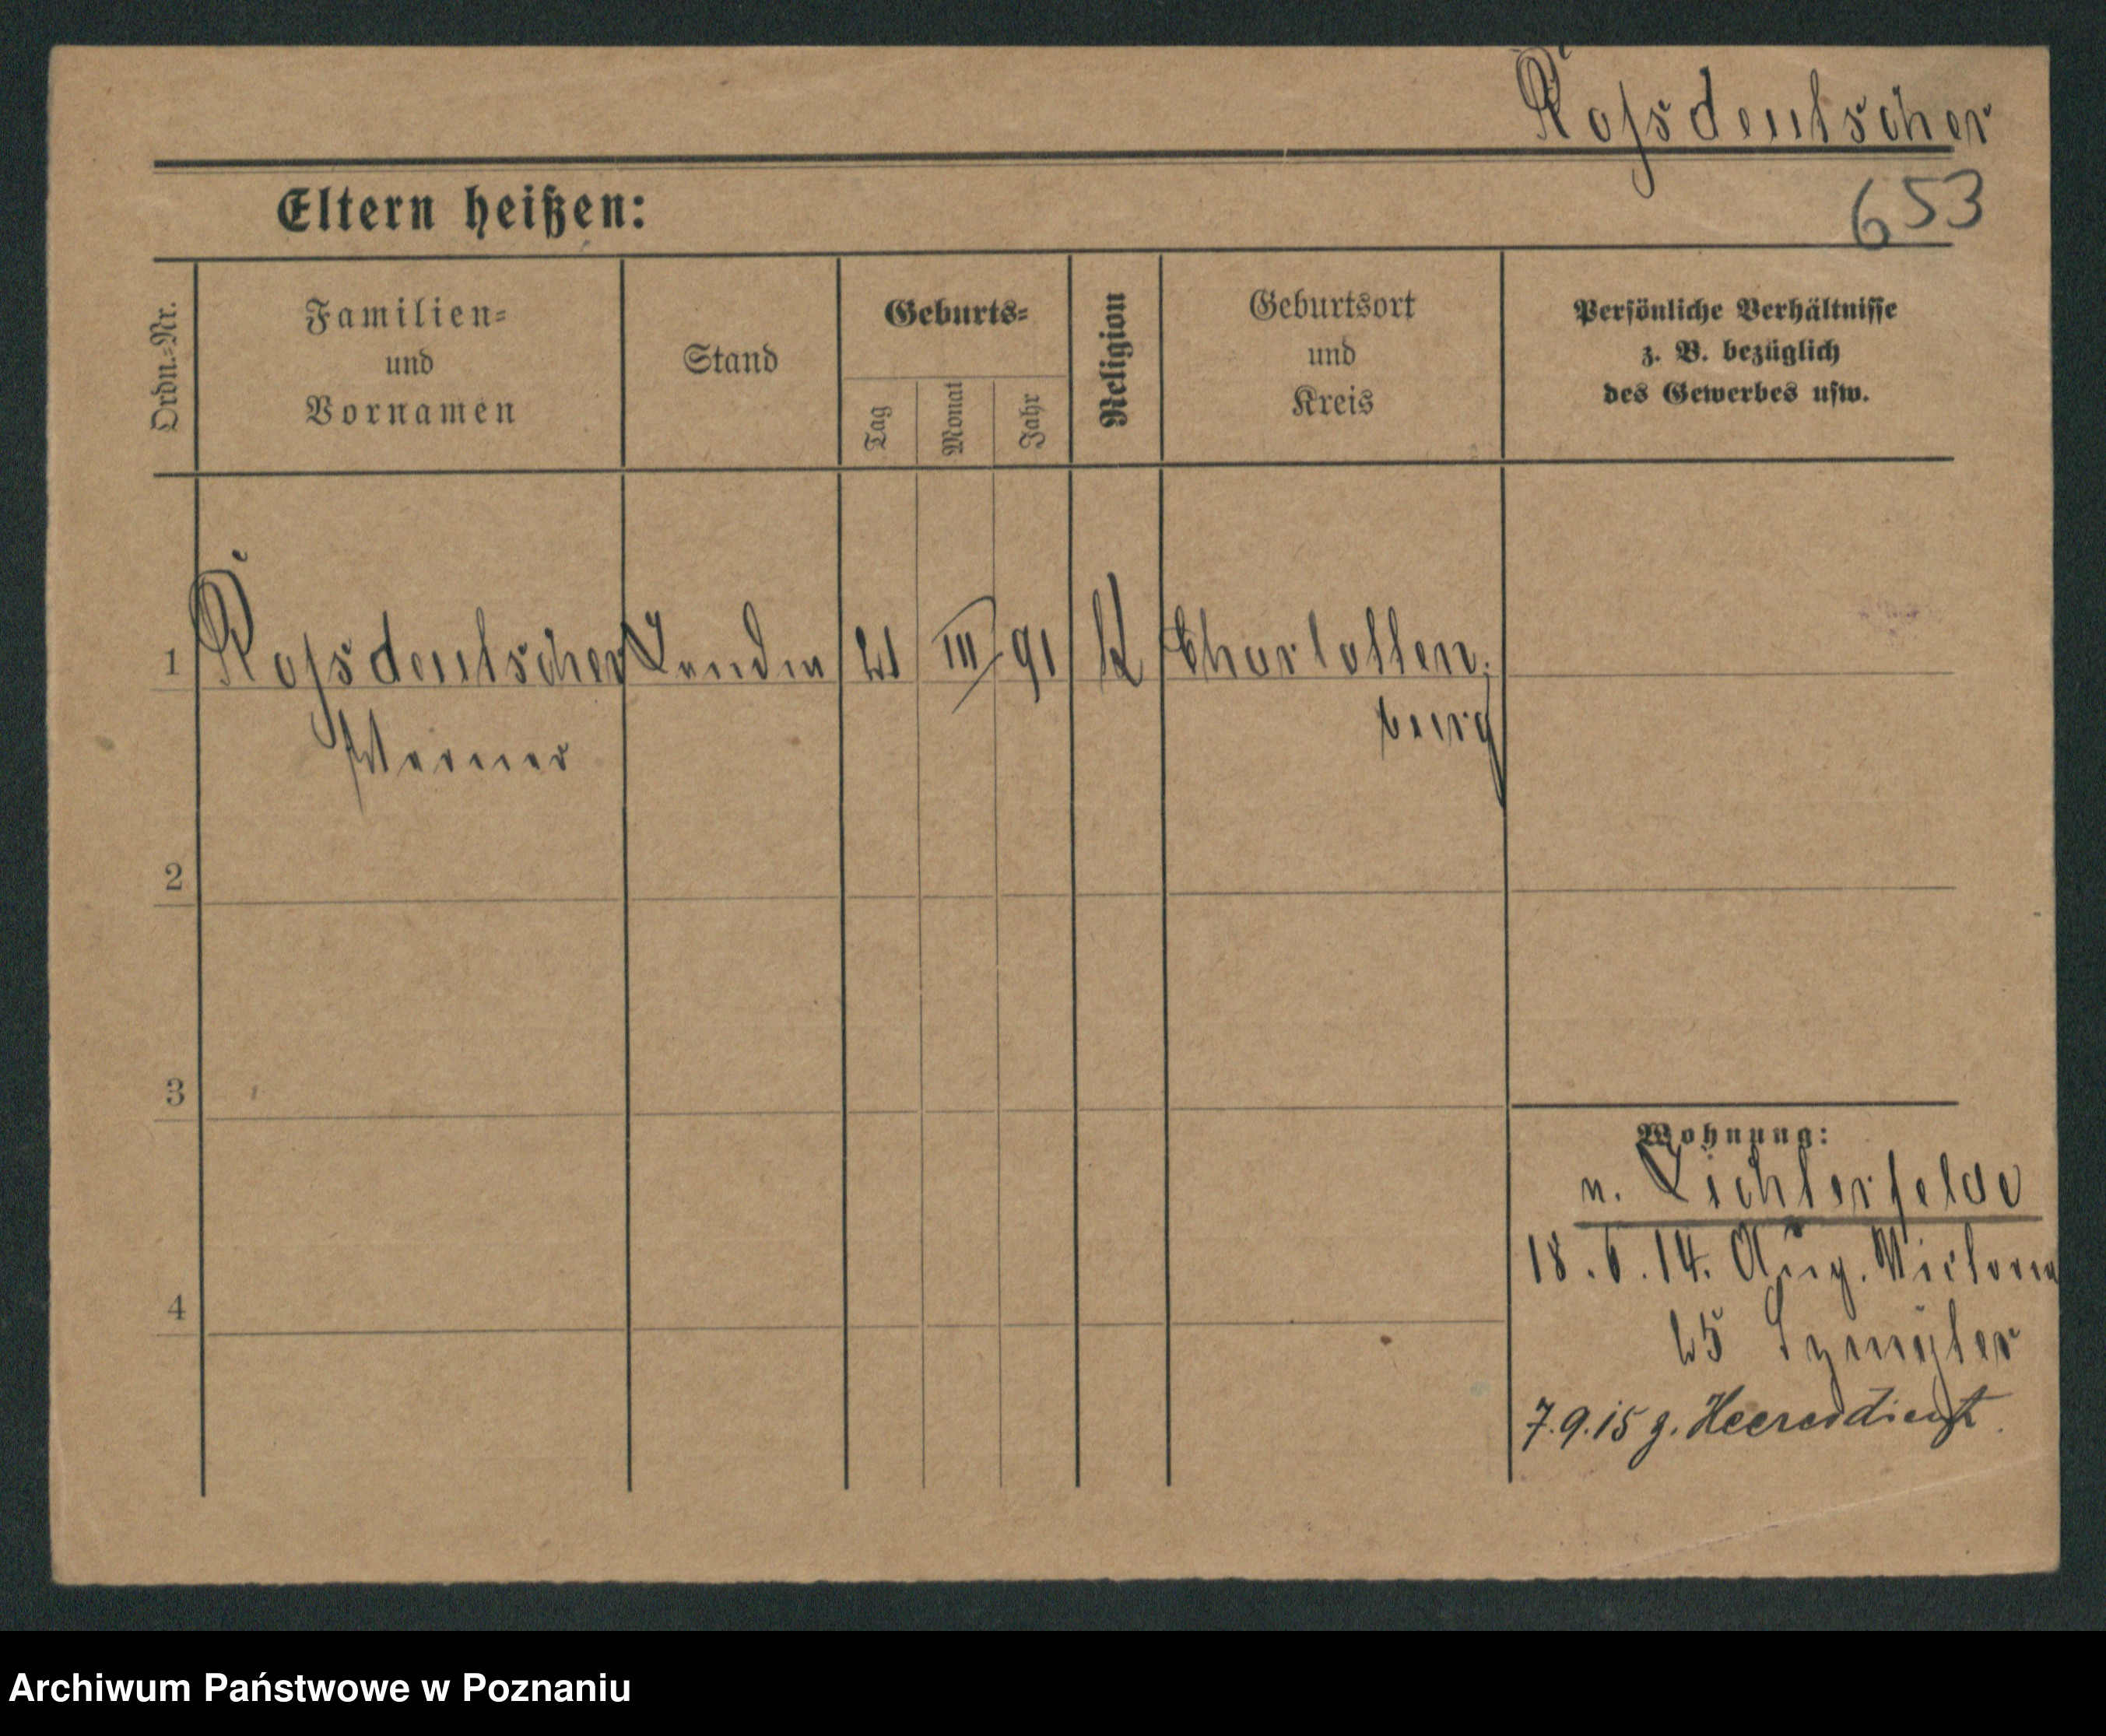 Rossdeutscher
Eltern heißen:
653
Ordn.=Nr.
Familien=
und
Vornamen
Stand
Geburts=
Tag
Monat
Jahr
Religion
Geburtsort
und
Kreis
Persönliche Verhältnisse
z. B. bezüglich
des Gewerbes usw.
1 Rossdeutscher III 91 K Charlotten-
Werner burg
2
3
4
Wohnung:
n. Lichterfelde
18. 6. 14. Aug. Victoria
25
7.9.15 z. Heeresdienst.
Archiwum Państwowe w Poznaniu